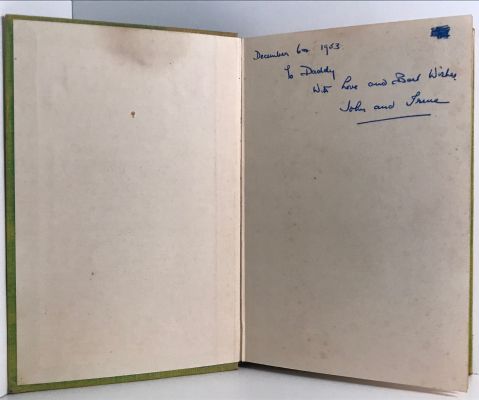 December 6th 1953
To Daddy
With Love and Best Wishes
John and Irene